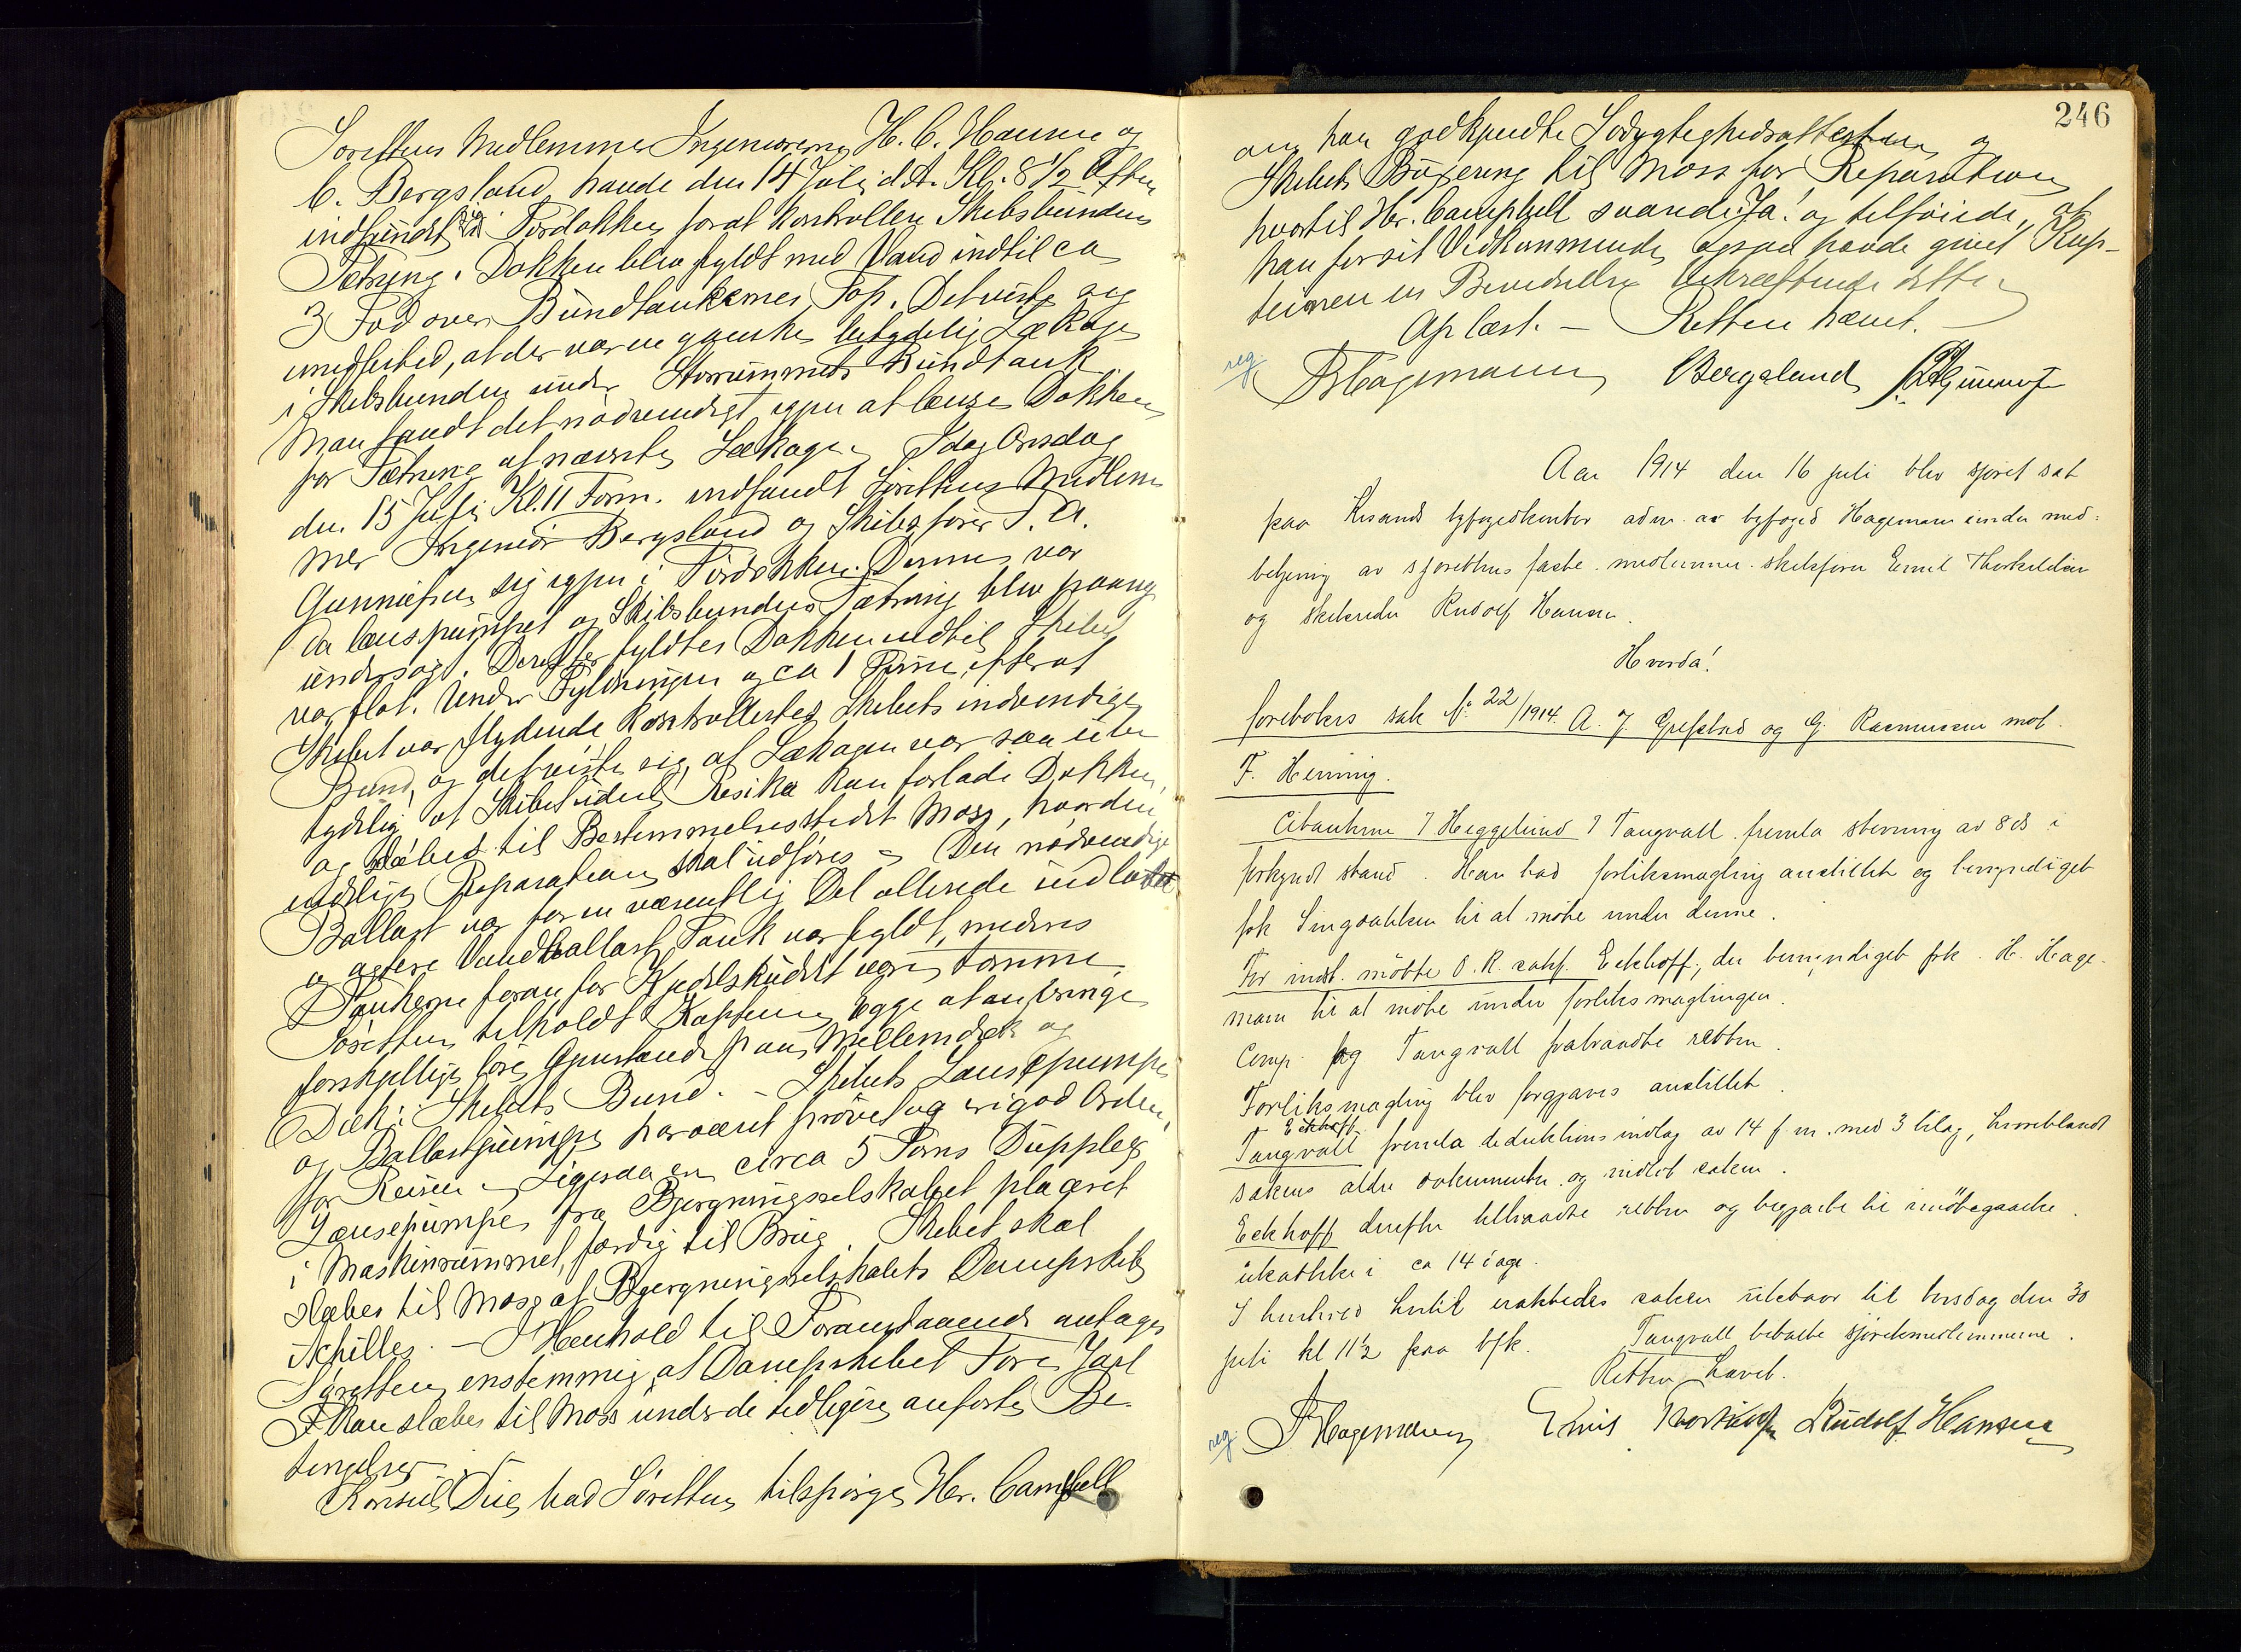 Sørettens Medlemmer Ingeniørerne H. C. Hansen og
C. Bergsland havde den 14 Juli d.A. Kl. 8 1/2 Aften
indfundet sig i Tørdokken forat kontrollere Skibsbundens
Tætning. Dokken blev fyldt med Vand indtil ca
3 Fod over Bundtankernes Top. Det viste sig
imidlertid, at der var en ganske betydelig Lækage
i Skibsbunden under Storrummets Bundtank
Man fandt det nødvendigt igjen at lense Dokken
for Tætning af nævnte Lækage. Idag Onsdag
den 15 Juli Kl. 11 Form. indfandt Sørettens Medlem-
mer Ingeniør Bergsland og Skibsfører T. A.
Gunnufsen sig igjen i Tørdokken. Denne var
da lenspumpet og Skibsbundens Tætning blev paany
undersøgt. Derefter fyldtes Dokken indtil Skibet
var flot. Under Fyldningen og ca 1 Time efterat
Skibet var flydende kontrollertes Skibets indvendige
Bund, og det viste sig, at Lækagen var saa ube
tydelig at Skibet uden Risiko kan forlade Dokken
og slæbes til Bestemmelsesstedet Moss, hvor den
endelige Reparation skal udføres. Den nødvendige
Ballast var for en væsentlig Del allerede indlastet
og agtere Vandballast Tank var fyldt, medens
Tankerne foran for Kjedelskuddet var tomme.
Søretten tilholdt Kaptein Egge at anbringe
forskjellige løse Gjenstande paa Mellemdæk og
Dæk i Skibets Bund. - Skibets Lensepumpe
og Ballastpumpe har været prøvet og er i god Orden
for Reisen. Ligesaa en circa 5 Toms Duppleks
Lænsepumpe fra Bjergningsselskabet placeret
i Maskinrummet, færdig til Brug. Skibet skal
slæbes til Moss af Bjergningsselskabets Dampskib
Achilles. - I Henhold til Foranstaaende antager
Søretten enstemmig, at Dampskibet Tore Jarl
kan slæbes til Moss under de tidligere anførte Be-
tingelser.
Konsul Due bad Søretten tilspørge Hr. Campbell
246
om han godkjendte Sødygtighedsattesten og
Skibets Bugsering til Moss for Reparation
hvortil Hr. Campbell svarede Ja! og tilføiede, at
han for sit Vedkommende ogsaa havde givet Kap-
teinen en Bevidnelse bekræftende dette.
Oplæst. - Retten hævet. -
reg. Hagemann Bergsland T. A. Gunnufsen
Aar 1914 den 16 juli blev sjøret sat
paa Krsands byfogedkontor adm. av byfoged Hagemann under med-
betjening av sjørettens faste medlemmer skibsfører Emil Thorkildsen
og skibsreder Rudolf Hansen.
Hvorda!
foretokes sak No. 22/1914. A. J. Grefstad og G. Rasmussen mot
F. Henning.
Citanterne v Heggelund v Tangvall fremla stevning av 8 ds i
forkyndt stand. Han bad forliksmægling anstillet og bemyndiget
frk Singdahlsen til at møte under denne.
For indst. møtte O.R. sakf. Eckhoff, der bemyndiget frk. H. Hage-
mann til at møte under forliksmæglingen.
Comp. og Tangvall fratraadte retten.
Forliksmægling blev forgjæves anstillet.
Eckhoff
Tangvall fremla deduktionsindlæg av 14 f.m. med 3 bilag, hvoriblandt
sakens ældre dokumenter og indlot saken.
Eckhoff derefter tiltraadte retten og begjærte til imøtegaaelse
utsættelse i ca 14 dage.
I henhold hertil utsættedes saken utebaar til torsdag den 30
juli kl 11 1/2 paa bfk. Tangvall betalte sjøretsmedlemmerne.
Retten hævet.
reg. Hagemann Emil Thorkildsen Rudolf Hansen